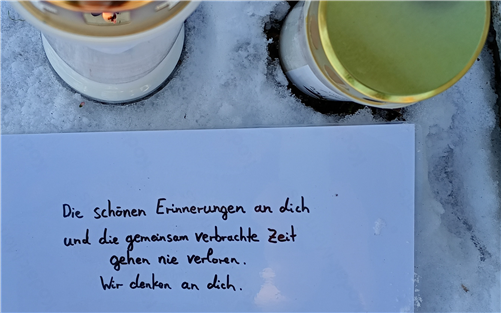 Die schönen Erinnerungen an dich
und die gemeinsam verbrachte Zeit
gehen nie verloren.
Wir denken an dich.